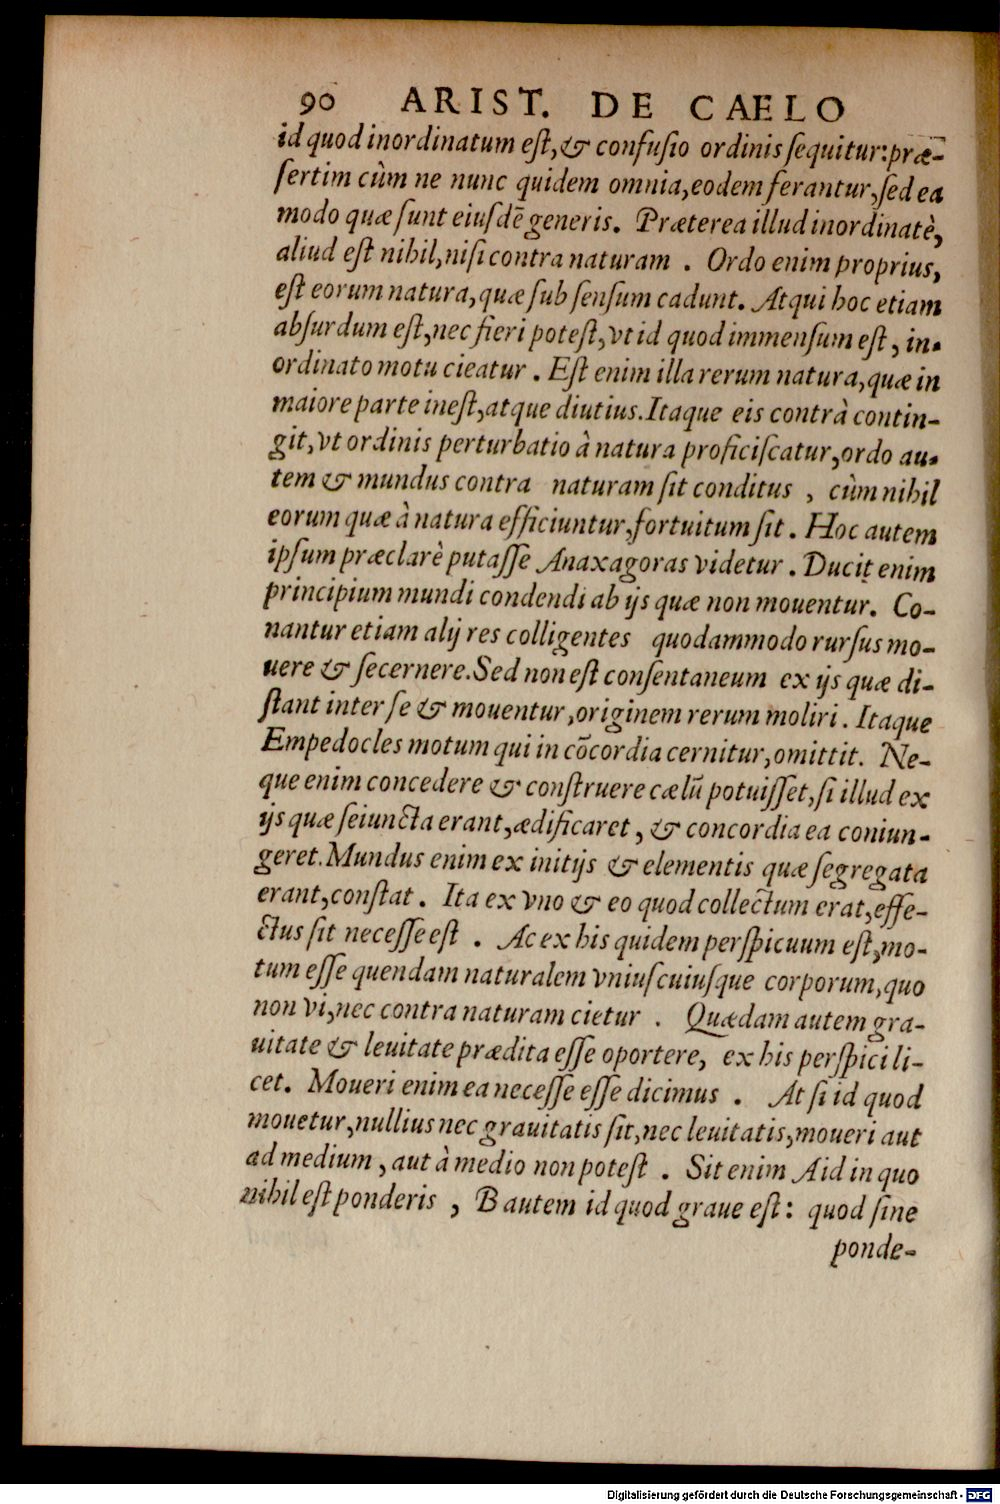 90 ARIST. DE CAELO
id quod inordinatum eſt, & confuſio ordinis ſequitur: præ-
ſertim cùm ne nunc quidem omnia, eodem ferantur, ſed ea
modo quæ ſunt eiuſdē generis. Præterea illud inordinatè,
aliud eſt nihil, niſi contra naturam . Ordo enim proprius,
eſt eorum natura, quæ ſub ſenſum cadunt. Atqui hoc etiam
abſurdum eſt, nec fieri poteſt, vt id quod immenſum eſt, in-
ordinato motu cieatur . Eſt enim illa rerum natura, quæ in
maiore parte ineſt, atque diutius. Itaque eis contrà contin-
git, vt ordinis perturbatio à natura proficiſcatur, ordo au-
tem & mundus contra naturam ſit conditus , cùm nihil
eorum quæ à natura efficiuntur, fortuitum ſit . Hoc autem
ipſum præclarè putaſſe Anaxagoras videtur . Ducit enim
principium mundi condendi ab ijs quæ non mouentur. Co-
nantur etiam alij res colligentes quodammodo rurſus mo-
uere & ſecernere. Sed non eſt conſentaneum ex ijs quæ di-
ſtant inter ſe & mouentur, originem rerum moliri . Itaque
Empedocles motum qui in cōcordia cernitur, omittit. Ne-
que enim concedere & conſtruere cælū potuiſſet, ſi illud ex
ijs quæ ſeiuncta erant, ædificaret , & concordia ea coniun-
geret. Mundus enim ex initijs & elementis quæ ſegregata
erant, conſtat . Ita ex vno & eo quod collectum erat, effe-
ctus ſit neceſſe eſt . Ac ex his quidem perſpicuum eſt, mo-
tum eſſe quendam naturalem vniuſcuiuſque corporum, quo
non vi, nec contra naturam cietur . Quædam autem gra-
uitate & leuitate prædita eſſe oportere, ex his perſpici li-
cet. Moueri enim ea neceſſe eſſe dicimus . At ſi id quod
mouetur, nullius nec grauitatis ſit, nec leuitatis, moueri aut
ad medium , aut à medio non poteſt . Sit enim A id in quo
nihil eſt ponderis , B autem id quod graue eſt: quod ſine
ponde-
Digitalisierung gefördert durch die Deutsche Forschungsgemeinschaft - DFG